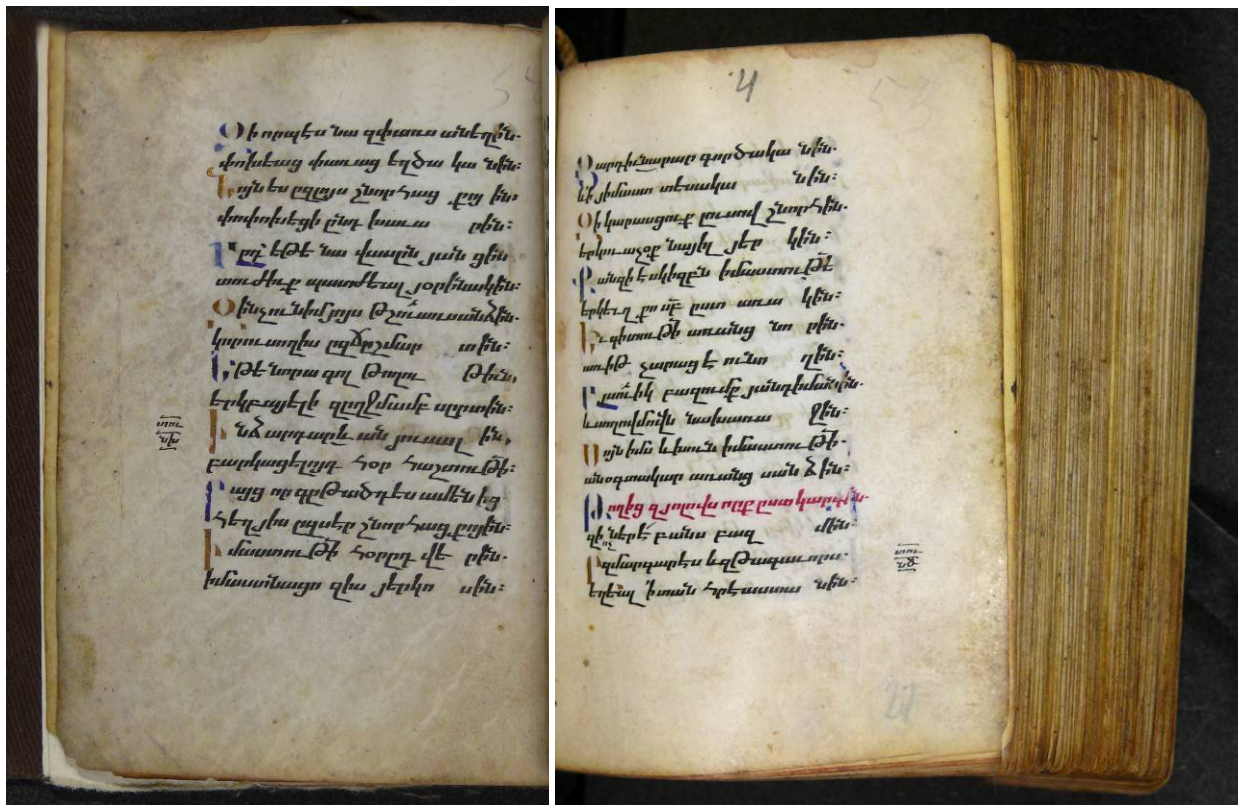 Զի որպէս նա զփառս անեղին.
փոխեաց փառաց եղծա կա նին։
Նոյնես զլոյս շնորհաց քոյ ին
փոփոխեցի ընդ խաւա րին։
Այլ եթէ նա վասըն յան ցին
տուժիւք պատժեալ յօրինակին։
Զինչ ունիմ յոյս թշուառս անձին.
կորուսողիս զճշմար տին։
Եթէ նորա գոլ թողու թիւն,
երկբայելի գըղջմամբ սըրտին։
Ինձ արդարև ան յուսալ ին,
բարկացելոյդ հօր հաշտութի։
Բայց որ գըթածդ ես ամենից
հեղ յիս զսէր շնորհաց քոյին։
Իմաստութի հօրըդ վե րին.
իմաստնացո զիս յերկո սին։
տուն
4
Զարդիւնարար գործակա նին.
և յիմաստ տեսակա նին։
Զի կարասցուք լուսով շնորհին.
երկու աչօք նայիլ յեր կին։
Քանզի է սկիզբն իմաստութե
երկեւղ քո մբ ըստ առա կին։
Եւ գիտութի առանց նո րին.
առիթ չարաց է ունո ղին։
բազումք յանդիմանին.
և սողովմովն նախառա ջին։
իմս և խուն իմաստութի.
անօգտակար առանց սան ձին։
Թողից զյոլովս որք ըստ կարգին.
զի ներէ բանս բազ մին։
զմարգարէս և զթագաւորս.
եղեալ ի տան հրէաստա նին։
տուն
27